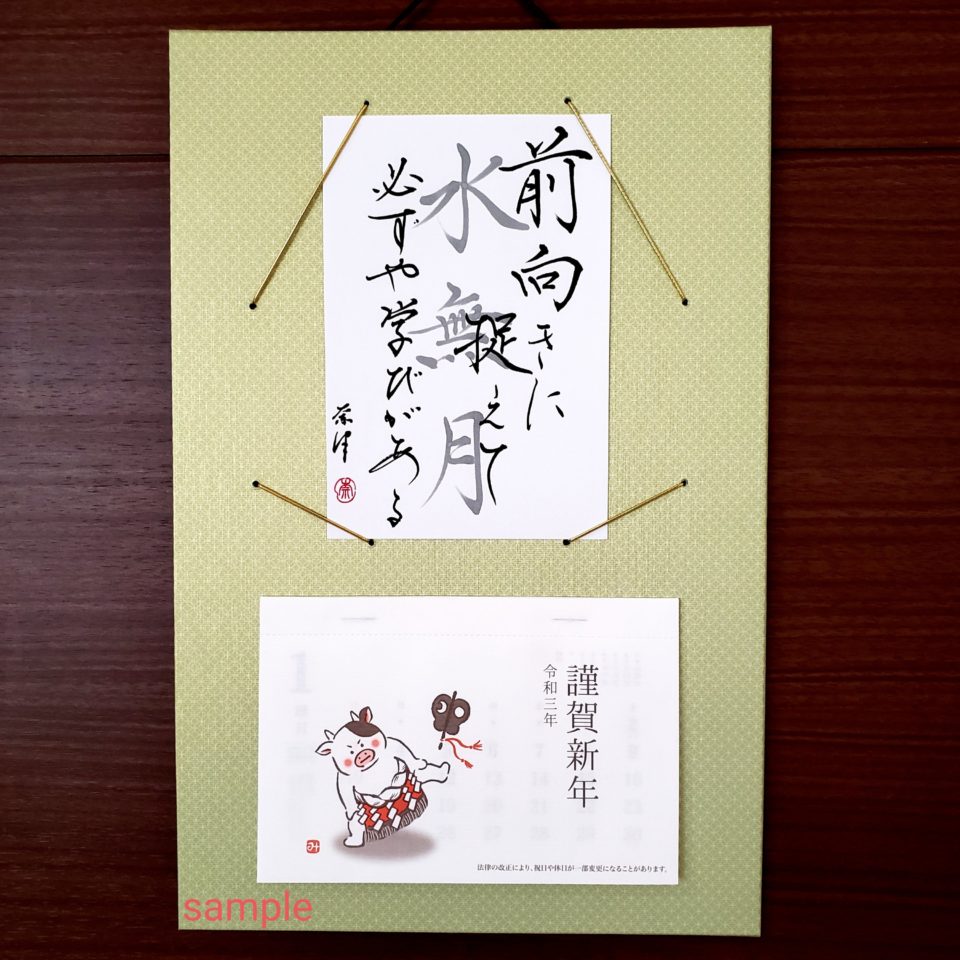 前向きに
捉えて
水無月
必ずや学びがある
謹賀新年
令和三年
み
法律の改正により、祝日や休日が一部変更になることがあります。
sample